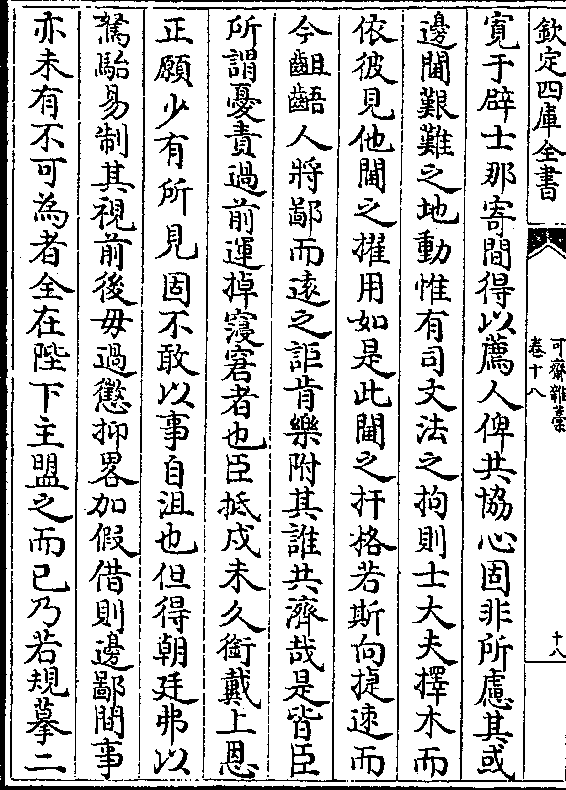 欽定四庫全書
可齋雜藁
卷十八
十八
寛于辟士那寄間得以薦人俾共協心固非所慮其或
邊閫艱難之地動惟有司文法之拘則士大夫擇木而
依彼見他閫之擢用如是此閫之扞格若斯向㨗速而
今齟齬人將鄙而逺之詎肯樂附其誰共濟哉是皆臣
所謂憂責過前運掉窘者也臣抵戍未久銜戴上恩
正願少有所見固不敢以事自沮也但得朝廷弗以
駑駘易制其視前後毋過懲抑畧加假借則邊鄙間事
亦未有不可為者全在陛下主盟之而已乃若規摹二